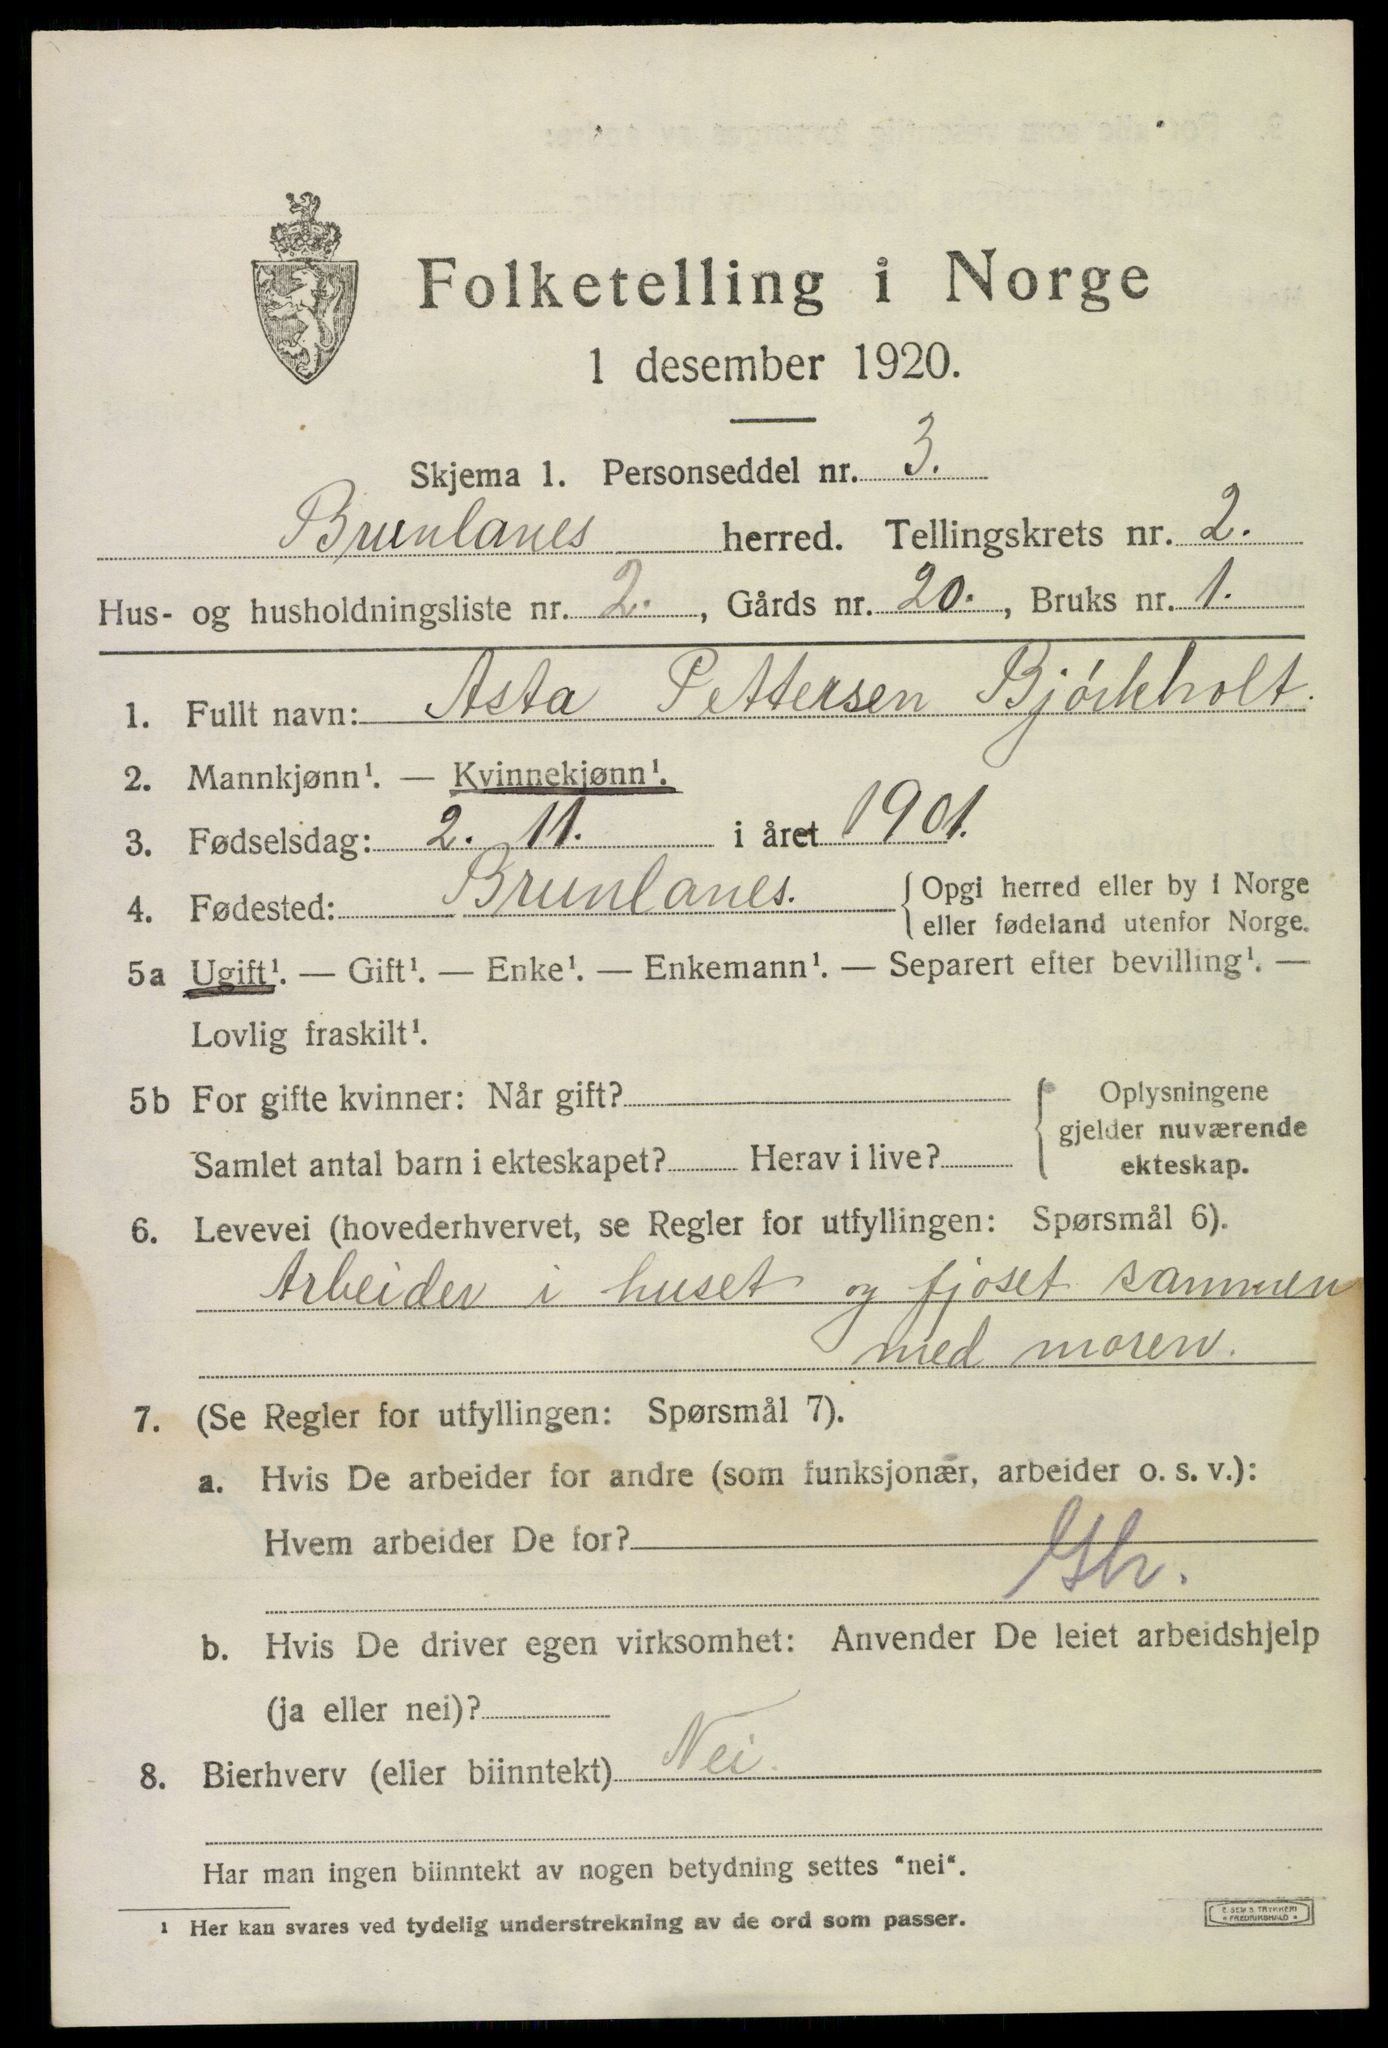 Folketelling i Norge
1 desember 1920.
Skjema 1. Personseddel nr. 3.
Brunlanes herred. Tellingskrets nr. 2.
Hus- og husholdningsliste nr. 2., Gårds nr. 20., Bruks nr. 1.
1. Fullt navn: Asta Pettersen Bjórkholt.
2. Mannkjønn¹. — Kvinnekjønn¹.
3. Fødselsdag: 2. 11. i året 1901.
4. Fødested: Brunlanes. { Opgi herred eller by i Norge
eller fødeland utenfor Norge.
5a Ugift¹. — Gift¹. — Enke¹. — Enkemann¹. — Separert efter bevilling¹. —
Lovlig fraskilt¹.
5b For gifte kvinner: Når gift? { Oplysningene
gjelder nuværende
Samlet antal barn i ekteskapet? Herav i live? ekteskap.
6. Levevei (hovederhvervet, se Regler for utfyllingen: Spørsmål 6).
Arbeider i huset og fjøset sammen
med moren.
7. (Se Regler for utfyllingen: Spørsmål 7).
a. Hvis De arbeider for andre (som funksjonær, arbeider o. s. v.):
Hvem arbeider De for?
b. Hvis De driver egen virksomhet: Anvender De leiet arbeidshjelp
(ja eller nei)?
8. Bierhverv (eller biinntekt) Nei.
Har man ingen biinntekt av nogen betydning settes "nei".
¹ Her kan svares ved tydelig understrekning av de ord som passer.
E. SEM S TRYKKERI
FREDRIKSHALD